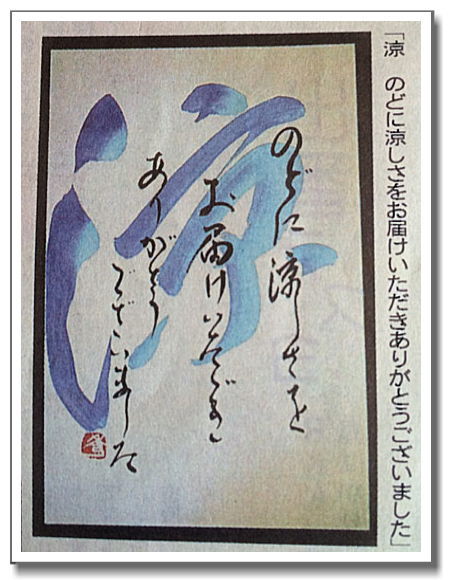 「涼　のどに涼しさをお届けいただきありがとうございました」
涼
のどに涼しさを
お届けいただき
ありがとう
ございました